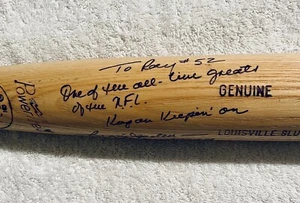 To Ray #52
One of the all-time greats
of the N.F.L.
Keep on Keepin' on
Power
GENUINE
LOUISVILLE SLU